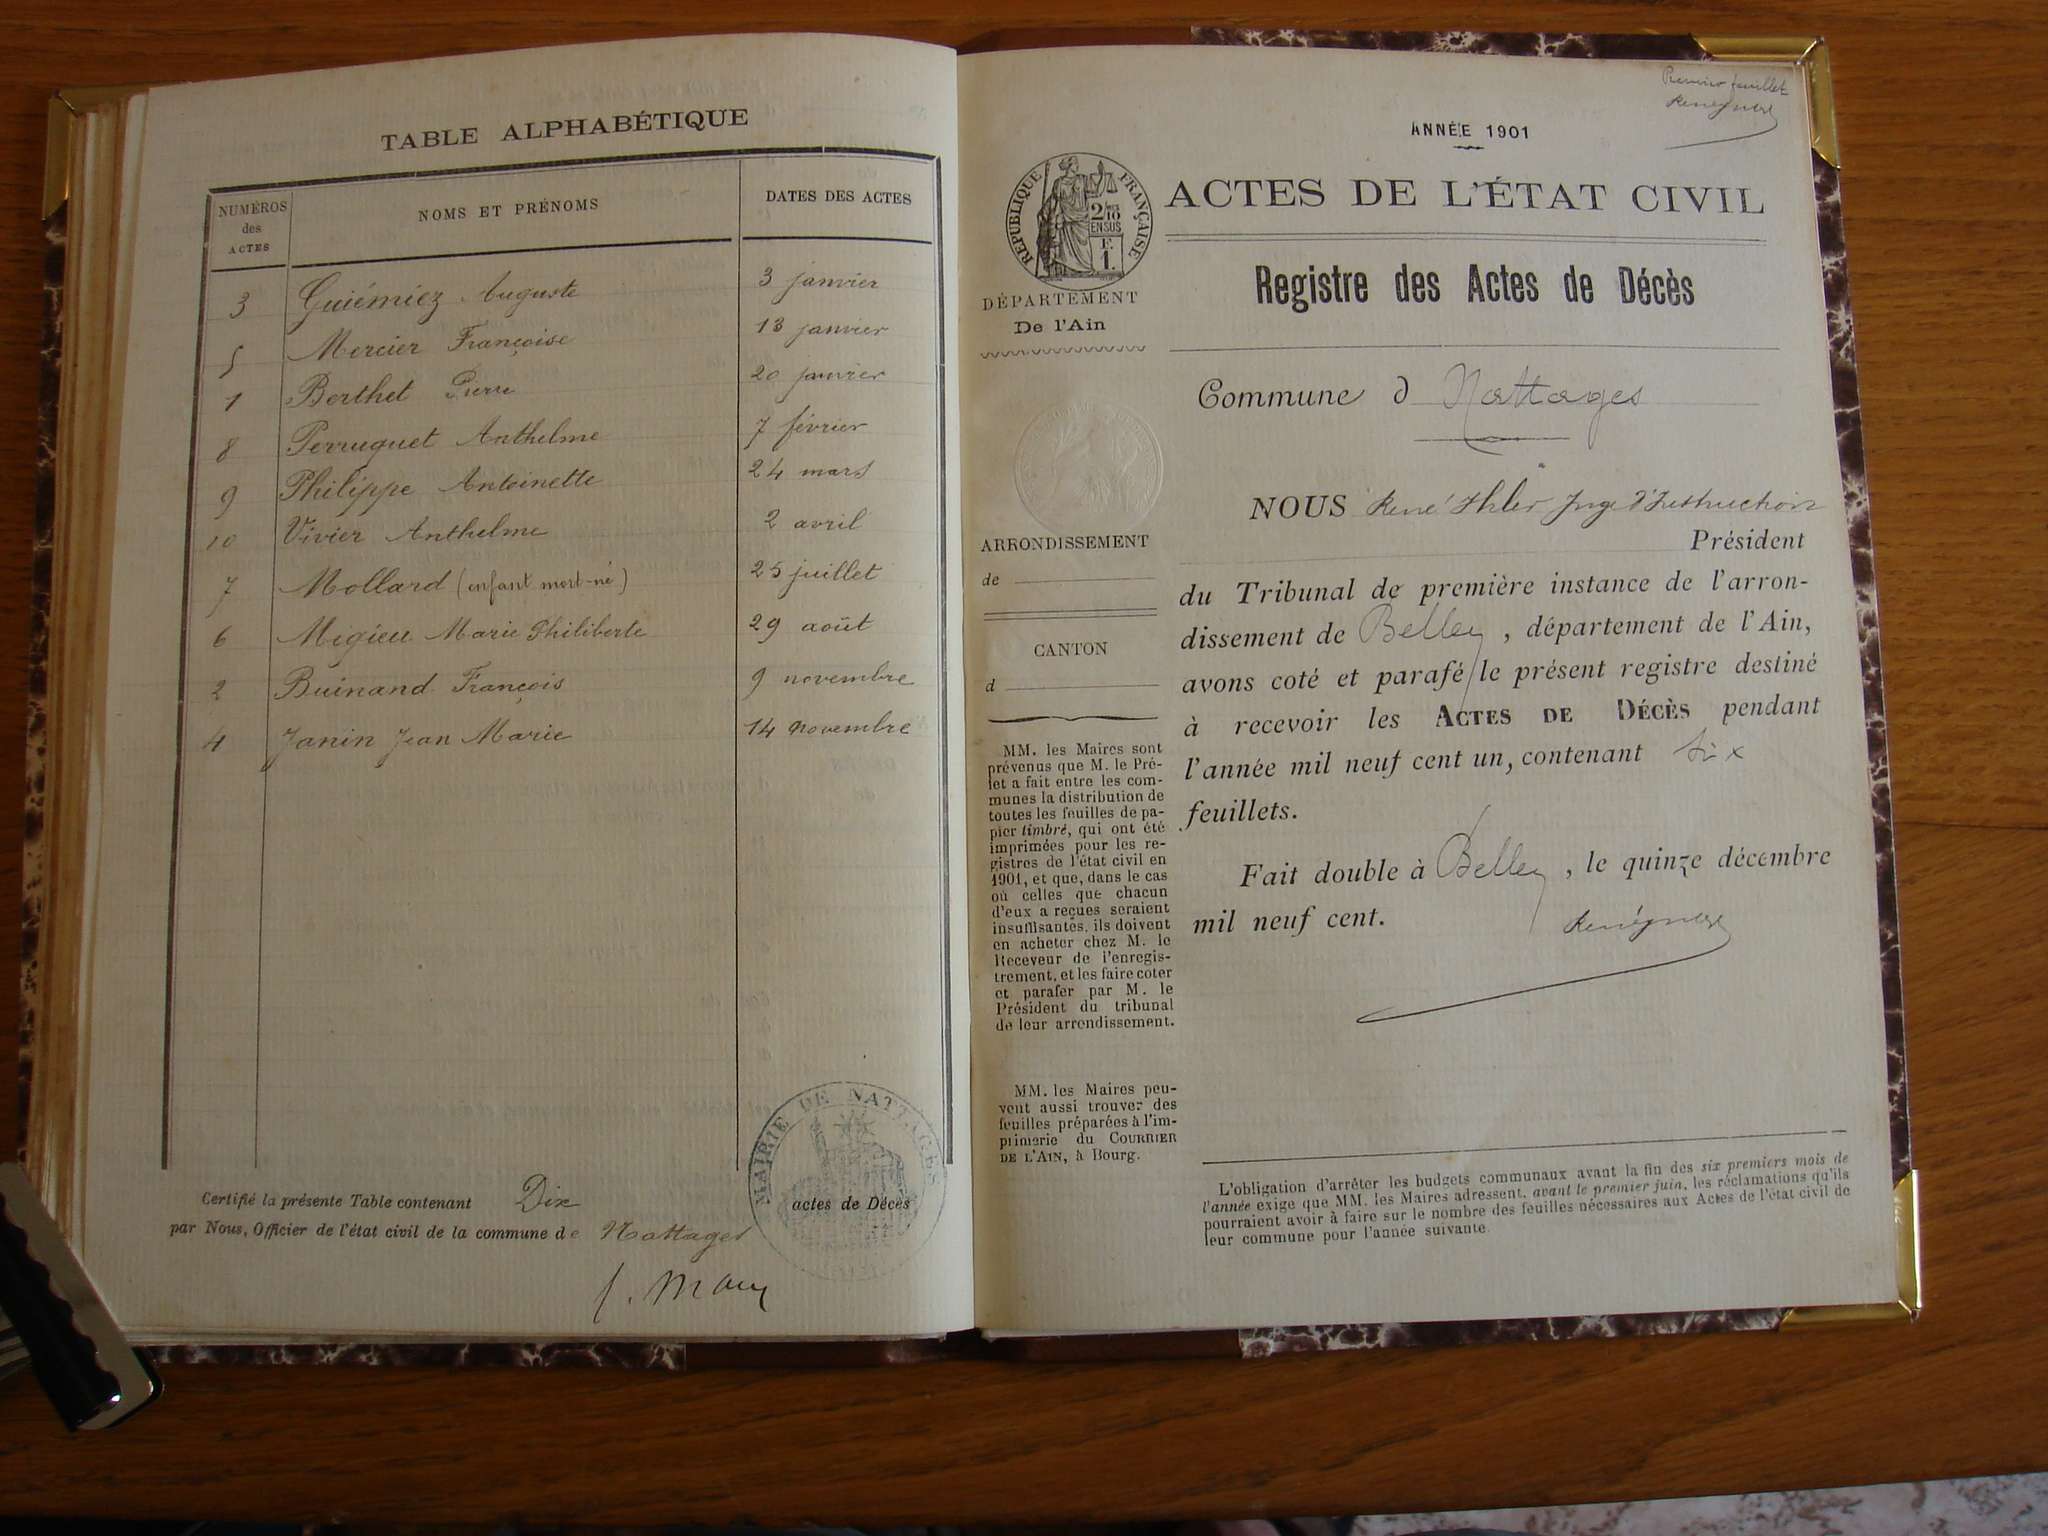 TABLE ALPHABÉTIQUE
NUMÉROS des ACTES NOMS ET PRÉNOMS DATES DES ACTES
3 Guiémiez Auguste 3 janvier
5 Mercier Françoise 13 janvier
1 Berthet Pierre 20 janvier
8 Perruquet Anthelme 7 février
9 Philippe Antoinette 24 mars
10 Vivier Anthelme 2 avril
7 Mollard (enfant mort-né) 25 juillet
6 Migieu Marie Philiberte 29 août
2 Buinand François 9 novembre
4 Janin Jean Marie 14 novembre
Certifié la présente Table contenant Dix actes de Décès
par Nous, Officier de l'état civil de la commune de Nattages
MAIRIE DE NATTAGES
Premier feuillet
ANNÉE 1901
RÉPUBLIQUE FRANÇAISE
2/10 EN SUS
F. 1.
ACTES DE L'ÉTAT CIVIL
Registre des Actes de Décès
DÉPARTEMENT
De l'Ain
Commune d Nattages
ARRONDISSEMENT
de
CANTON
d
MM. les Maires sont
prévenus que M. le Pré-
fet a fait entre les com-
munes la distribution de
toutes les feuilles de pa-
pier timbré, qui ont été
imprimées pour les re-
gistres de l'état civil en
1901, et que, dans le cas
où celles que chacun
d'eux a reçues seraient
insuffisantes, ils doivent
en acheter chez M. le
Receveur de l'enregis-
trement, et les faire coter
et parafer par M. le
Président du tribunal
de leur arrondissement.
MM. les Maires peu-
vent aussi trouver des
feuilles préparées à l'im-
primerie du COURRIER
DE L'AIN, à Bourg.
NOUS René Ihler Juge d'Instruction
Président
du Tribunal de première instance de l'arron-
dissement de Belley, département de l'Ain,
avons coté et parafé le présent registre destiné
à recevoir les ACTES DE DÉCÈS pendant
l'année mil neuf cent un, contenant six
feuillets.
Fait double à Belley, le quinze décembre
mil neuf cent.
L'obligation d'arrêter les budgets communaux avant la fin des six premiers mois de
l'année exige que MM. les Maires adressent, avant le premier juin, les réclamations qu'ils
pourraient avoir à faire sur le nombre des feuilles nécessaires aux Actes de l'état civil de
leur commune pour l'année suivante.